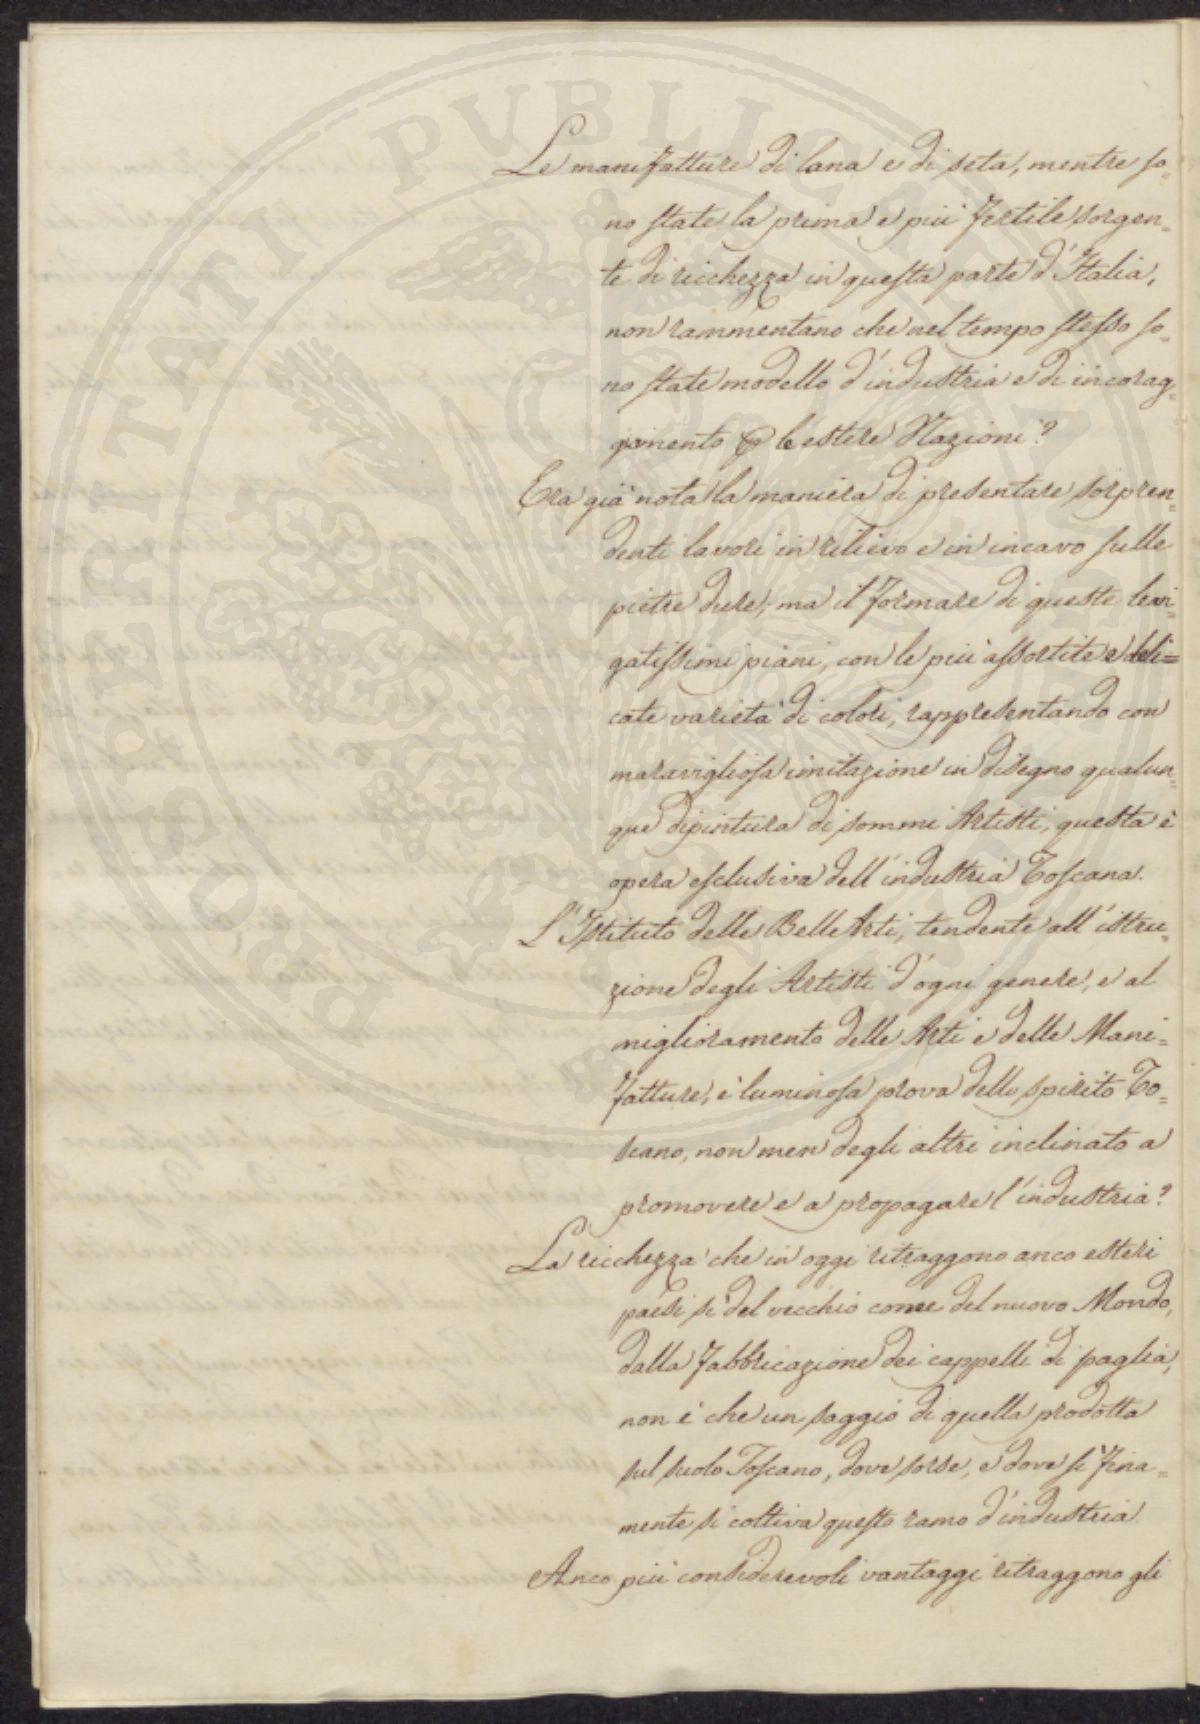 Le manifatture di lana e di seta, mentre so=
no state la prima e più fertile sorgen=
te di ricchezza in questa parte d'Italia,
non rammentano che nel tempo stesso so=
no state modello d'industria e di incorag=
giamento p le estere Nazioni?
Era già nota la maniera di presentare sorpren=
denti lavori in rilievo e in incavo sulle
pietre dure; ma il formare di queste levi=
gatissimi piani, con le più assortite e deli=
cate varietà di colori, rappresentando con
maravigliosa imitazione in disegno qualun=
que dipintura di sommi Artisti, questa è
opera esclusiva dell'industria Toscana.
L'Istituto delle Belle Arti, tendente all'istru=
zione degli Artisti d'ogni genere, e al
miglioramento delle Arti e delle Mani=
fatture, è luminosa prova dello spirito To=
scano, non men degli altri inclinato a
promovere e a propagare l'industria?
La ricchezza che in oggi ritraggono anco esteri
paesi sì del vecchio come del nuovo Mondo,
dalla fabbricazione dei cappelli di paglia,
non è che un saggio di quella prodotta
sul suolo Toscano, dove sorse, e dove sì fina=
mente si coltiva questo ramo d'industria
Anco più considerevoli vantaggi ritraggono gli
PROSPERITATI PUBLICAE